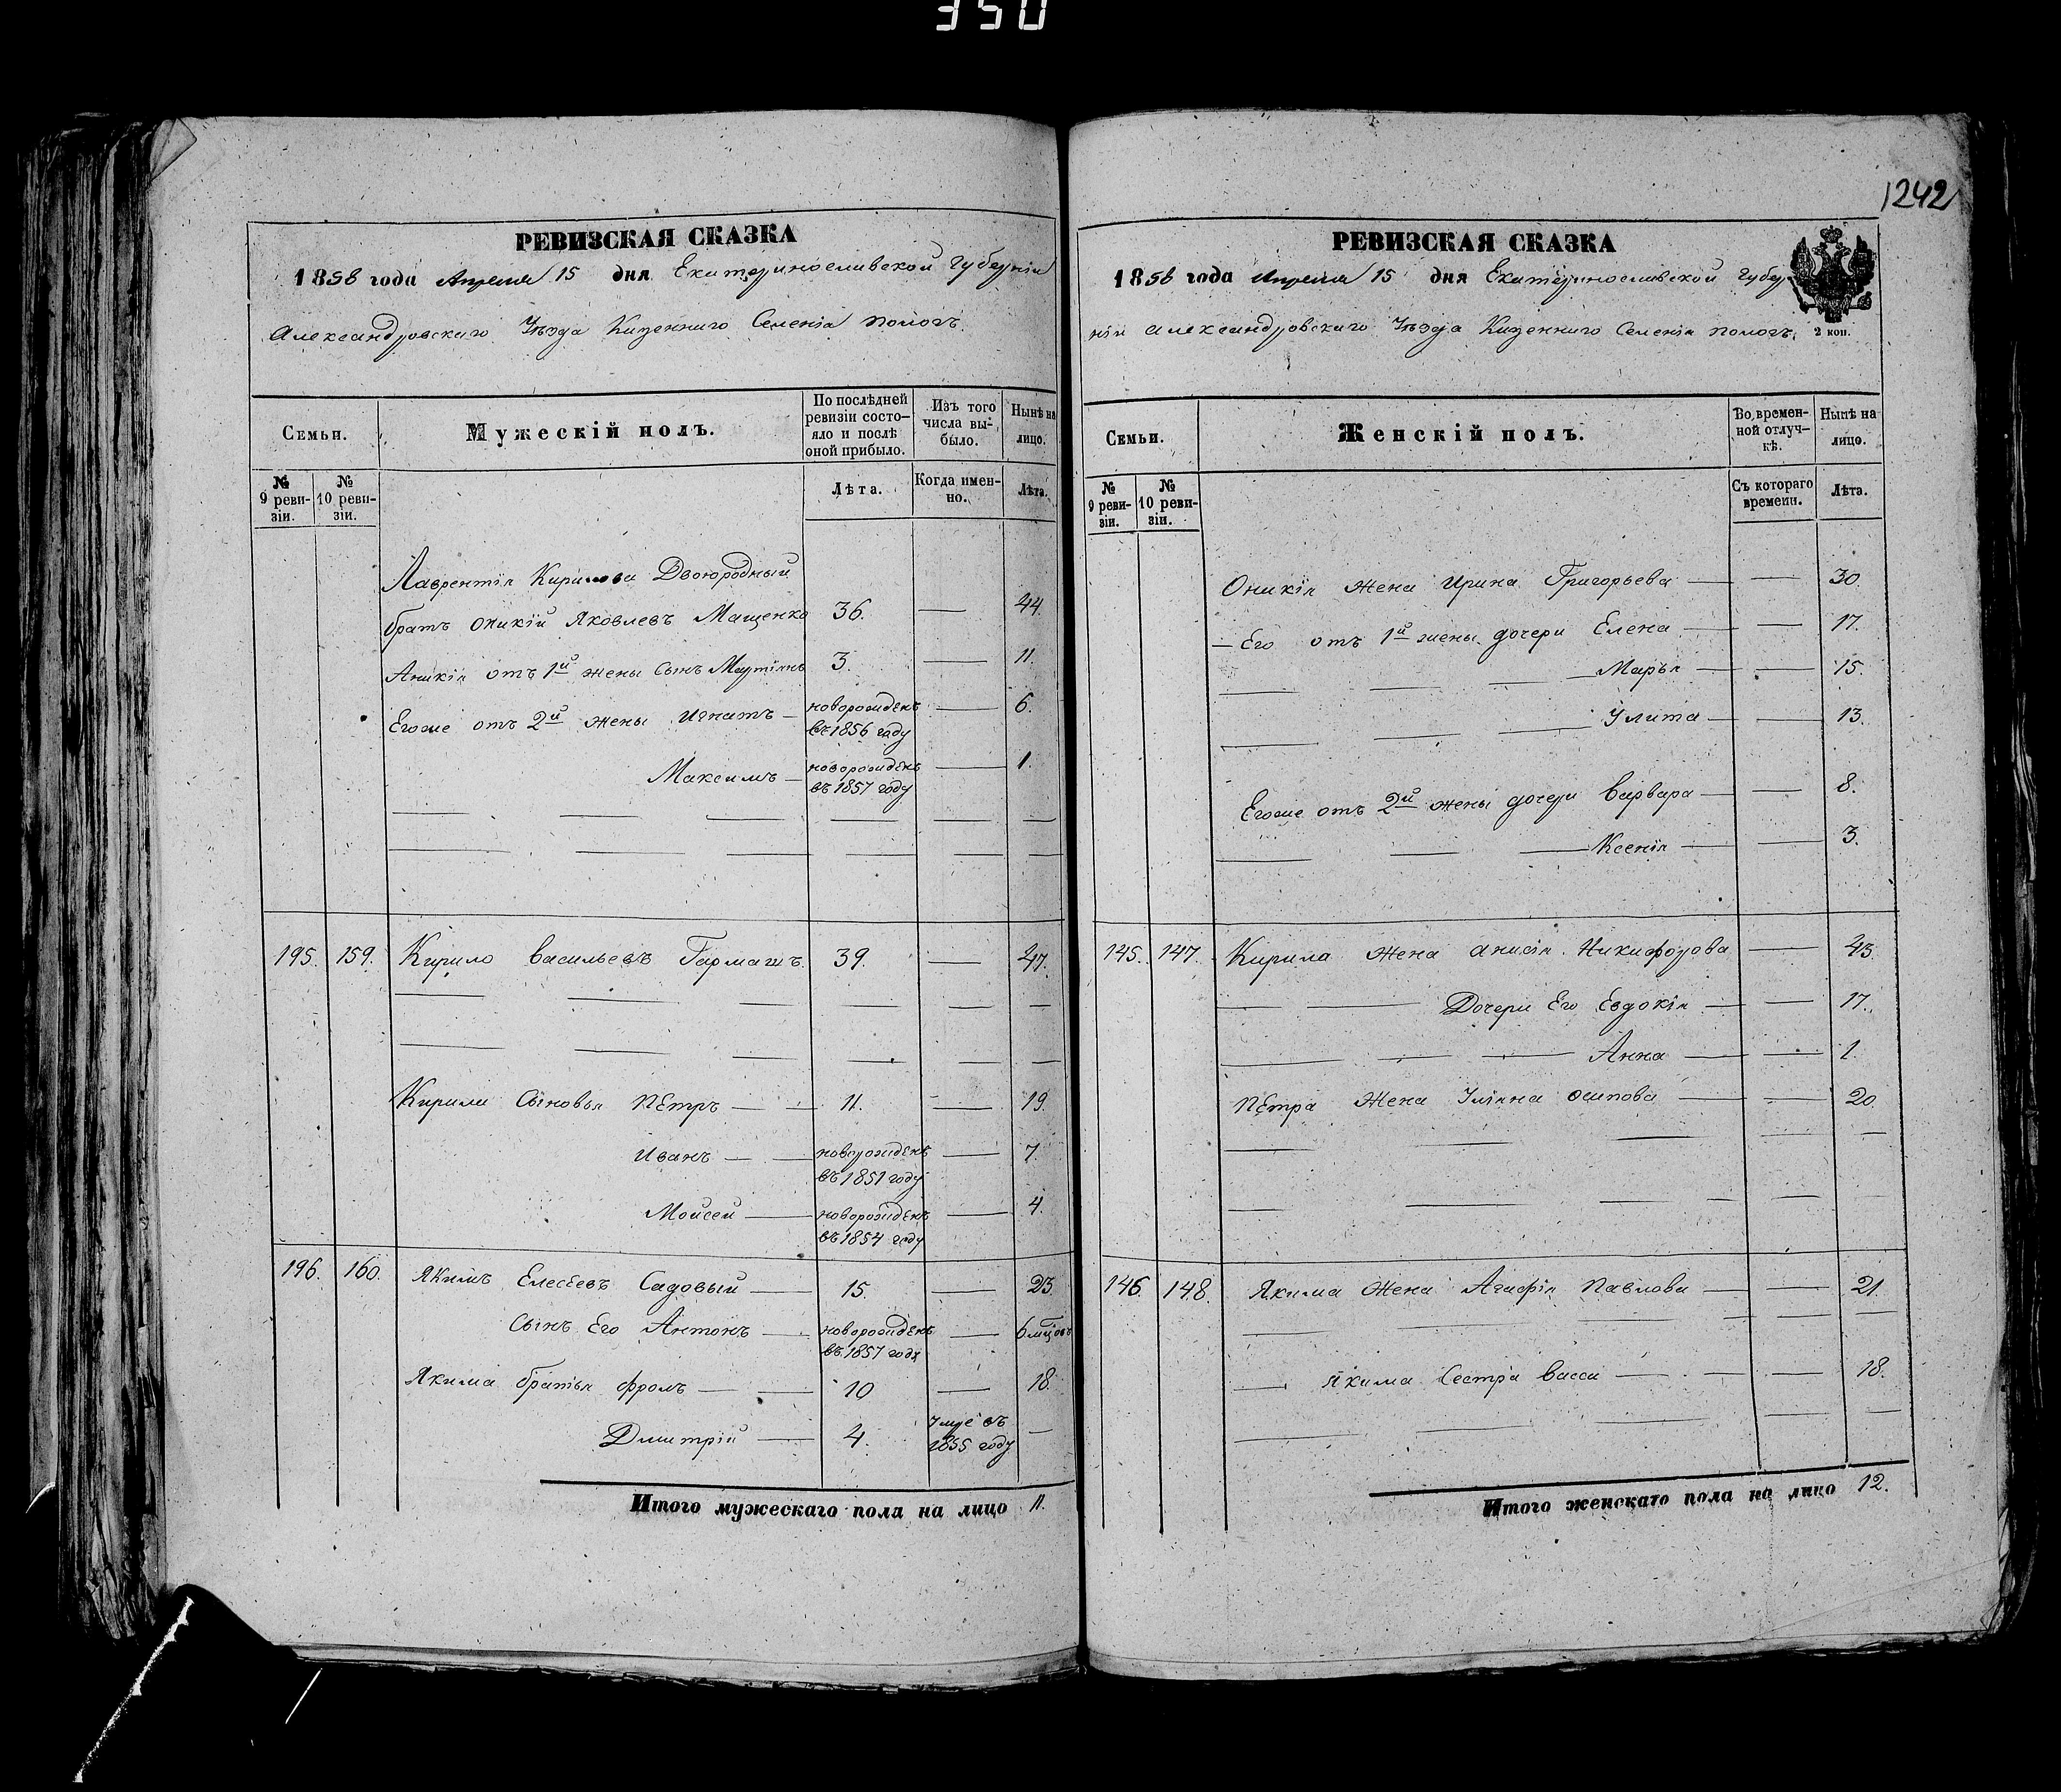 350
1242
РЕВИЗСКАЯ СКАЗКА
1858 года Апреля 15 дня Екатеринославской Губерніи
Александровскаго Уѣзда Казеннаго Селенія Пологъ.
Семьи.
Мужескій полъ.
По послѣдней ревизіи состо-
яло и послѣ
оной прибыло.
Изъ того
числа вы-
было.
Нынѣ на
лицо.
№
9 реви-
зіи.
№
10 реви-
зіи.
Лѣта.
Когда имен-
но.
Лѣта.
Лаврентія Кирилова Двоюродный
братъ Оникій Яковлевъ Мащенко 36. — 44.
Аникія отъ 1й жены сынъ 3. — 11.
Егоже отъ 2й жены Игнатъ — новорожденъ — 6.
въ 1856 году
Максимъ — новорожденъ — 1.
въ 1857 году
195. 159. Кирило Васильевъ Гармашъ. 39. — 47.
Кирила Сыновья Петръ — — 11. — 19.
Иванъ — — новорожденъ — 7.
въ 1851 году
Мойсей — новорожденъ — 4.
въ 1854 году
196. 160. Якимъ Елесеевъ Садовый — 15. — 23.
Сынъ Его Антонъ — новорожденъ — 6 мцовъ
въ 1857 году
Якима братья Фролъ — — 10 — 18.
Дмитрій — 4. Умре въ —
1855 году
Итого мужескаго пола на лицо 11.
РЕВИЗСКАЯ СКАЗКА
1858 года Апреля 15 дня Екатеринославской Губер
ніи Александровскаго Уѣзда Казеннаго Селенія Пологъ. 2 коп.
Семьи.
Женскій полъ.
Во времен-
ной отлуч-
кѣ.
Нынѣ на
лицо.
№
9 реви-
зіи.
№
10 реви-
зіи.
Съ котораго
времени.
Лѣта.
Оникія Жена Ирина Григорьева — — 30.
Его отъ 1й жены дочери Елена — — 17.
Марья — — 15.
Улита — — 13.
Егоже отъ 2й жены дочери Варвара — — 8.
Ксенія — — 3.
145. 147. Кирила Жена Анисія Никифорова — 43.
Дочери Его Евдокія — — 17.
Анна — — 1.
Петра Жена Уліяна Осипова — — 20.
146. 148. Якима Жена Агафія Павлова — — 21.
Якима Сестра Васса — — 18.
Итого женскаго пола на лицо 12.